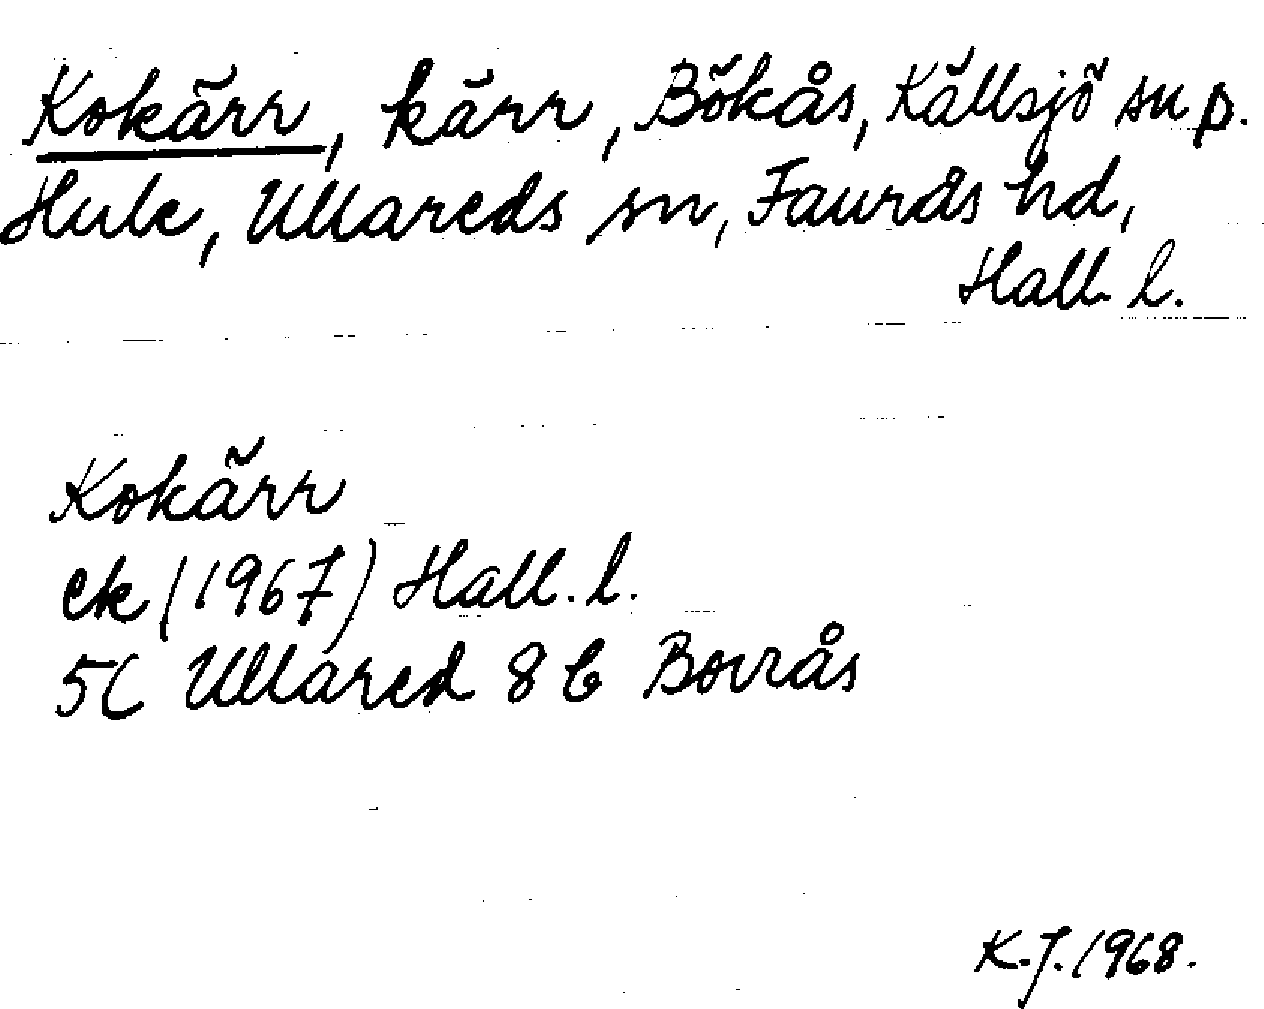 Kokärr, kärr, Bökås, Källsjö sn p.
Hule, Ullareds sn, Faurås hd,
Hall. l.
Kokärr
ek (1967) Hall. l.
5C Ullared 8 b Bovrås
K.J. 1968.